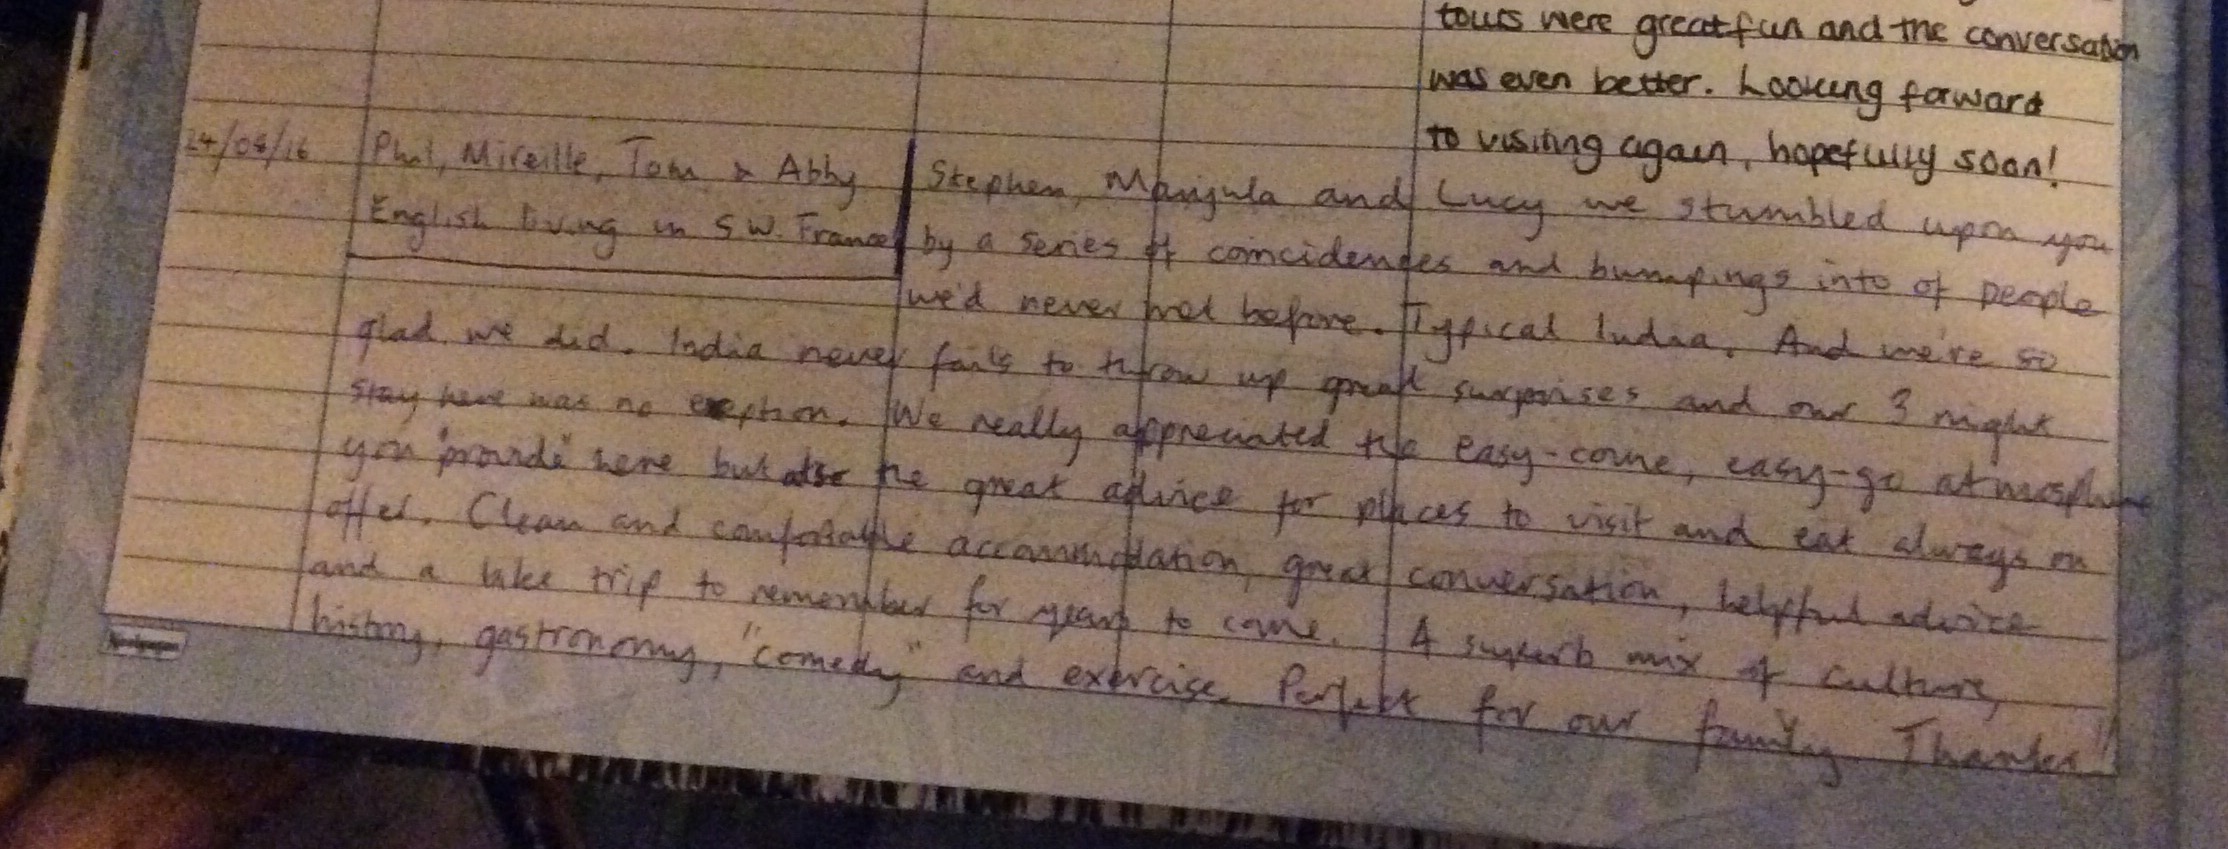 tours were great fun and the conversation
was even better. Looking forward
to visiting again, hopefully soon!
24/08/16 Phil, Mireille, Tom & Abby
English living in S.W. France
Stephen, Manjula and Lucy we stumbled upon you
by a series of coincidences and bumpings into of people
we'd never met before. Typical India. And we're so
glad we did. India never fails to throw up great surprises and our 3 night
stay here was no exeption. We really appreciated the easy-come, easy-go atmosphere
you "provide" here but also the great advice for places to visit and eat always on
offer. Clean and comfortable accommodation, great conversation, helpful advice
and a lake trip to remember for years to come. A superb mix of culture,
history, gastronomy, "comedy" and exercise. Perfekt for our family. Thanks!!